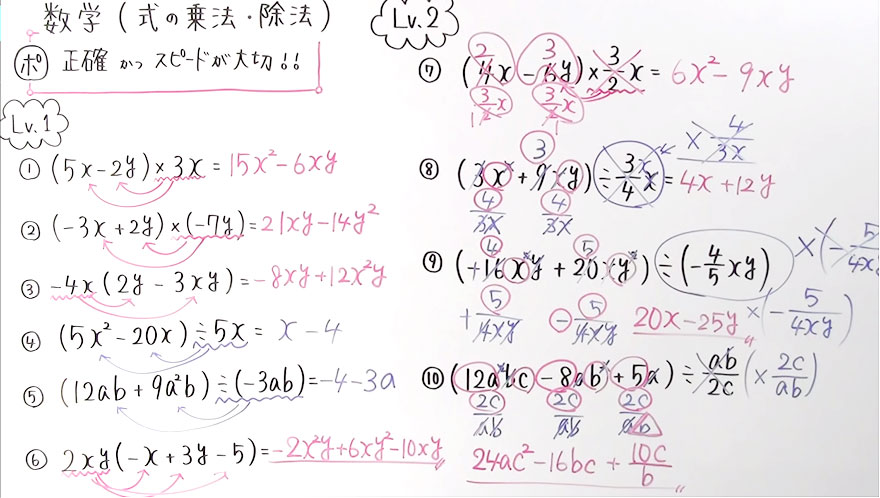 数学(式の乗法・除法)
ポ 正確かつスピードが大切!!
Lv.1
① (5x-2y)×3x=15x²-6xy
② (-3x+2y)×(-7y)=21xy-14y²
③ -4x(2y-3xy)=-8xy+12x²y
④ (5x²-20x)÷5x=x-4
⑤ (12ab+9a²b)÷(-3ab)=-4-3a
⑥ 2xy(-x+3y-5)=-2x²y+6xy²-10xy
Lv.2
2 3
⑦ (4x-6y)×3/2x=6x²-9xy
3/2x 3/2x
1 1
×4/3x
3
⑧ (3x²+9xy)÷3/4x=4x+12y
4/3x 4/3x
4 5
⑨ (+16x²y+20xy²)÷(-4/5xy) ×(-5/4xy
+5/4xy -5/4xy 20x-25y ×(-5/4xy)
⑩ (12a²bc-8ab²+5a)÷ab/2c (×2c/ab)
2c/ab 2c/ab 2c/ab
24ac²-16bc+10c/b